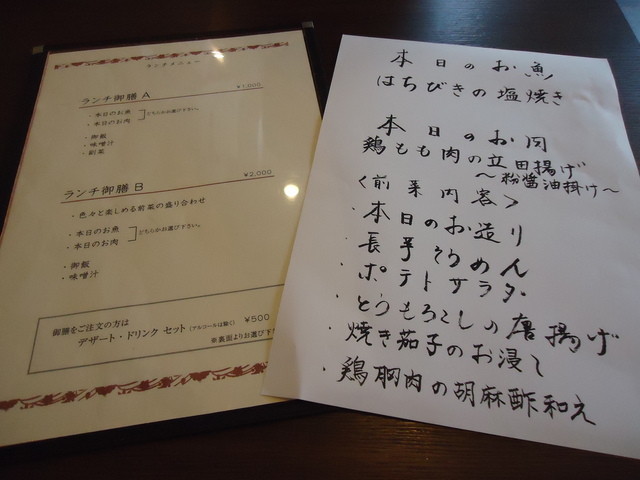 ランチメニュー
ランチ御膳 A ¥1,000
・本日のお魚
・本日のお肉
どちらかお選び下さい。
・御飯
・味噌汁
・副菜
ランチ御膳 B ¥2,000
・色々と楽しめる前菜の盛り合わせ
・本日のお魚
・本日のお肉
どちらかお選び下さい。
・御飯
・味噌汁
御膳をご注文の方は
デザート・ドリンク セット (アルコールは除く) ¥500
※裏面よりお選び下さ
本日のお魚
はちびきの塩焼き
本日のお肉
鶏もも肉の立田揚げ
〜粉醤油掛け〜
<前菜内容>
・本日のお造り
長芋そうめん
・ポテトサラダ
・とうもろこしの唐揚げ
・焼き茄子のお浸し
・鶏胸肉の胡麻酢和え